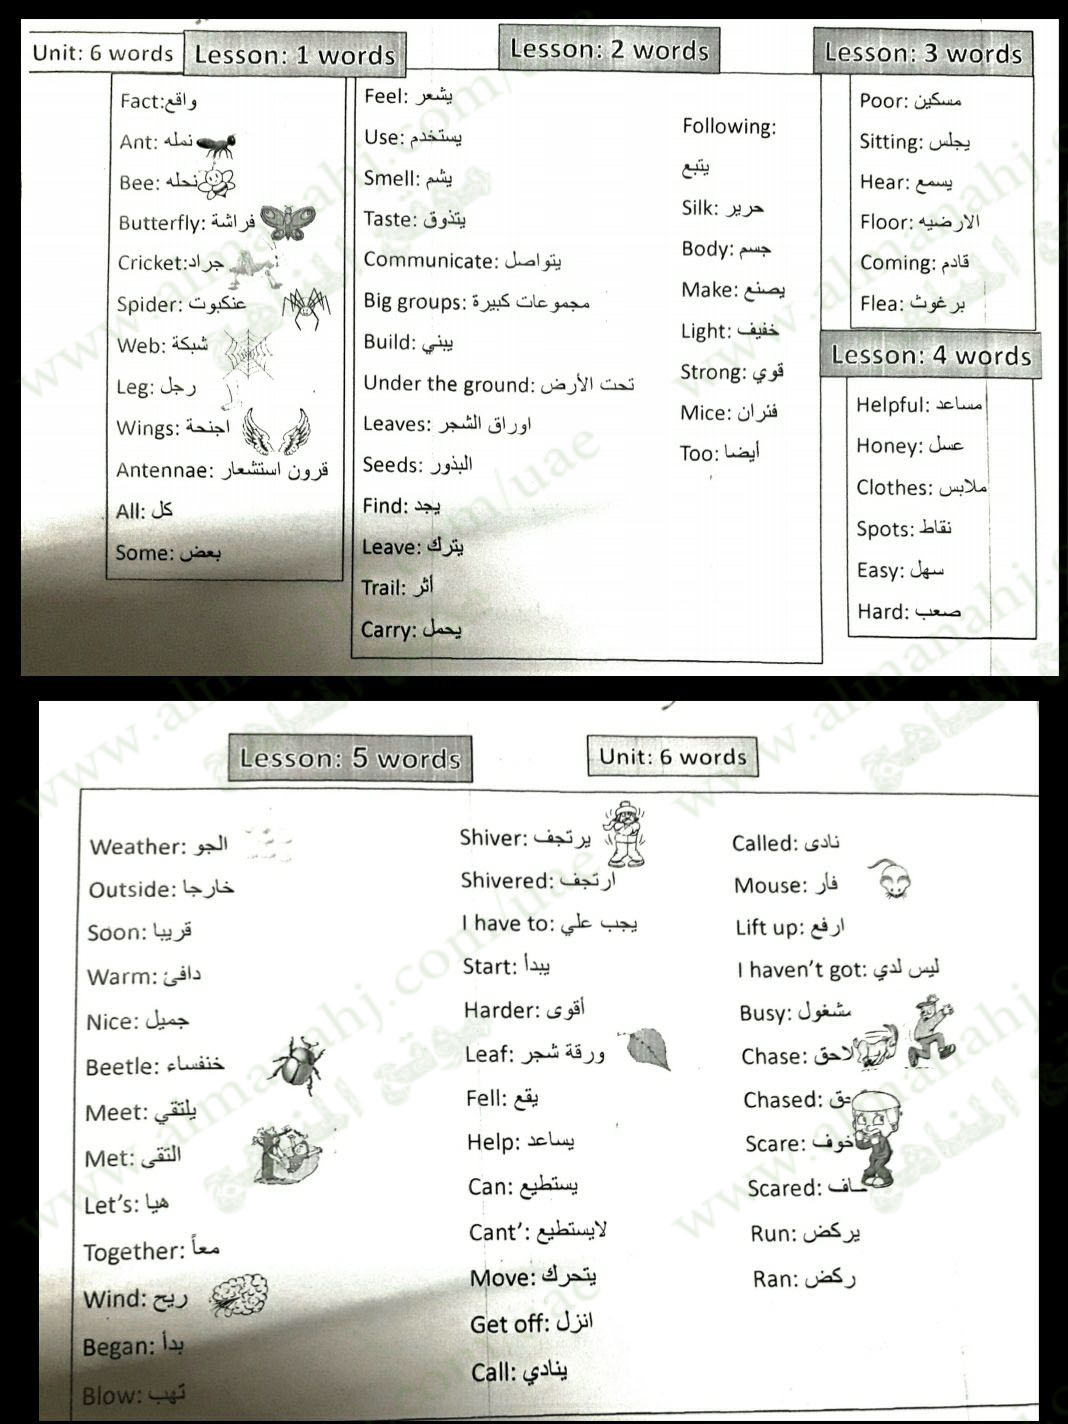 Unit: 6 words
Lesson: 1 words
Fact: واقع
Ant: نمله
Bee: نحله
Butterfly: فراشة
Cricket: جراد
Spider: عنكبوت
Web: شبكة
Leg: رجل
Wings: اجنحة
Antennae: قرون استشعار
All: كل
Some: بعض
Lesson: 2 words
Feel: يشعر
Use: يستخدم
Smell: يشم
Taste: يتذوق
Communicate: يتواصل
Big groups: مجموعات كبيرة
Build: يبني
Under the ground: تحت الأرض
Leaves: اوراق الشجر
Seeds: البذور
Find: يجد
Leave: يترك
Trail: أثر
Carry: يحمل
Following:
يتبع
Silk: حرير
Body: جسم
Make: يصنع
Light: خفيف
Strong: قوي
Mice: فئران
Too: أيضا
Lesson: 3 words
Poor: مسكين
Sitting: يجلس
Hear: يسمع
Floor: الارضيه
Coming: قادم
Flea: برغوث
Lesson: 4 words
Helpful: مساعد
Honey: عسل
Clothes: ملابس
Spots: نقاط
Easy: سهل
Hard: صعب
Lesson: 5 words
Unit: 6 words
Weather: الجو
Outside: خارجا
Soon: قريبا
Warm: دافئ
Nice: جميل
Beetle: خنفساء
Meet: يلتقي
Met: التقى
Let's: هيا
Together: معاً
Wind: ريح
Began: بدأ
Blow: تهب
Shiver: يرتجف
Shivered: ارتجف
I have to: يجب علي
Start: يبدأ
Harder: أقوى
Leaf: ورقة شجر
Fell: يقع
Help: يساعد
Can: يستطيع
Cant': لايستطيع
Move: يتحرك
Get off: انزل
Call: ينادي
Called: نادى
Mouse: فار
Lift up: ارفع
I haven't got: ليس لدي
Busy: مشغول
Chase: لاحق
Chased:
Scare: خوف
Scared:
Run: يركض
Ran: ركض
www.almanahj.com/uae
موقع المناهج